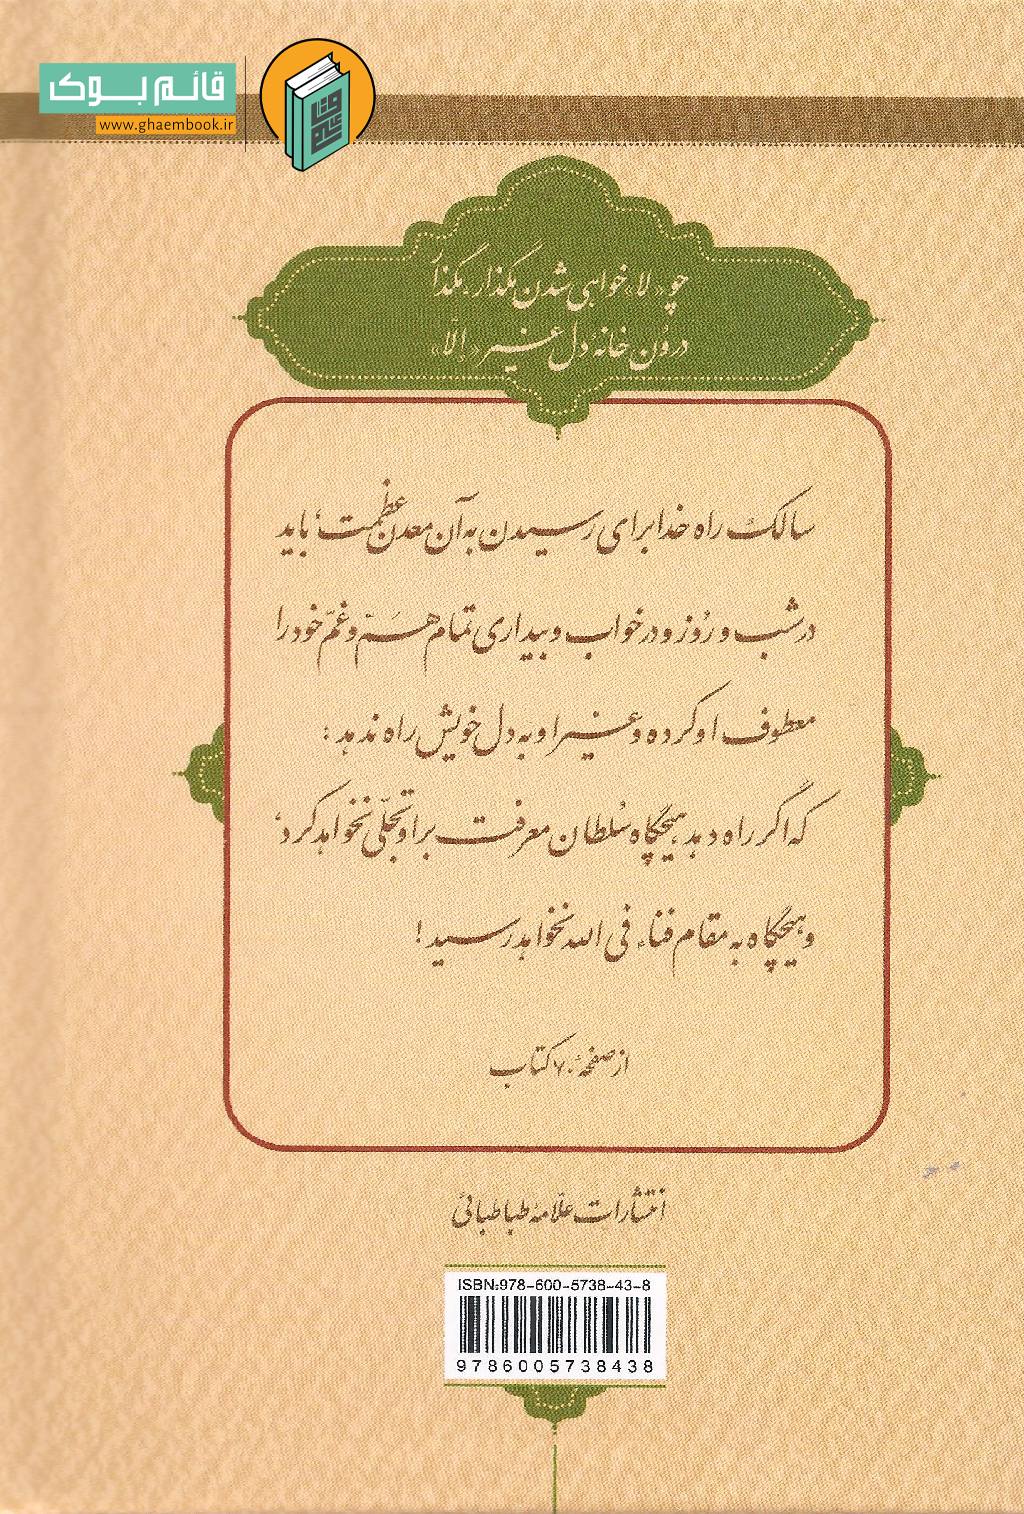 قائم بوک
www.ghaembook.ir
چو «لا» خواهی شدن مگذار، مگذار
درُون خانهٔ دل غیر «إلّا»
سالک راه خدا برای رسیدن به آن معدن عظمت؛ باید
در شب و رُوز و در خواب و بیداری تمام هَمّ و غمّ خود را
معطوف او کرده و غیر او به دل خویش راه ندهد:
که اگر راه دهد هیچگاه سُلطان معرفت بر او تجلّی نخواهد کرد؛
و هیچگاه به مقام فناء فی الله نخواهد رسید!
از صفحهٔ ۷۰ کتاب
انتشارات علّامهٔ طباطبائی
ISBN:978-600-5738-43-8
9786005738438